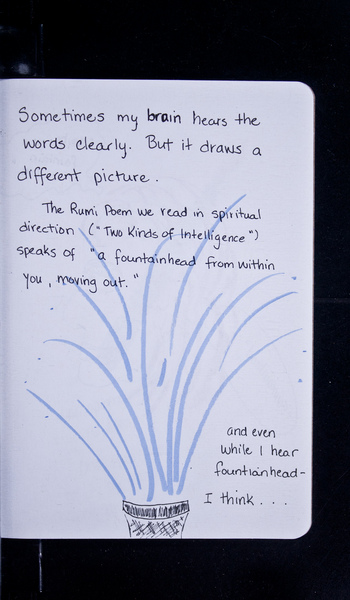 Sometimes my brain hears the
words clearly. But it draws a
different picture.
The Rumi Poem we read in spiritual
direction ("Two Kinds of Intelligence")
speaks of "a fountainhead from within
you, moving out."
and even
while I hear
fountianhead-
I think . . .